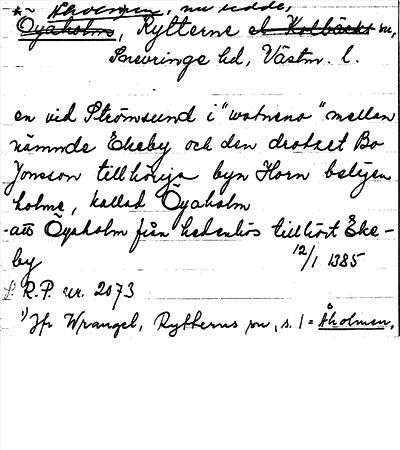 * Åholmen, nu udde,
Öyaholm, Rytterne el. Kolbäcks sn,
Snevringe hd, Västm. l.
en vid Strömsund i "watnena" mellan
nämnde Ekeby och den drotzet Bo
Jonsson tillhöriga byn Horn belägen
holme, kallad Öyaholm
-att Öyaholm från hedenhös tillhört Eke-
by 12/1 1385
R.P. nr. 2073
1) Jfr Wrangel, Rytterns sn, s. 1 = Åholmen.